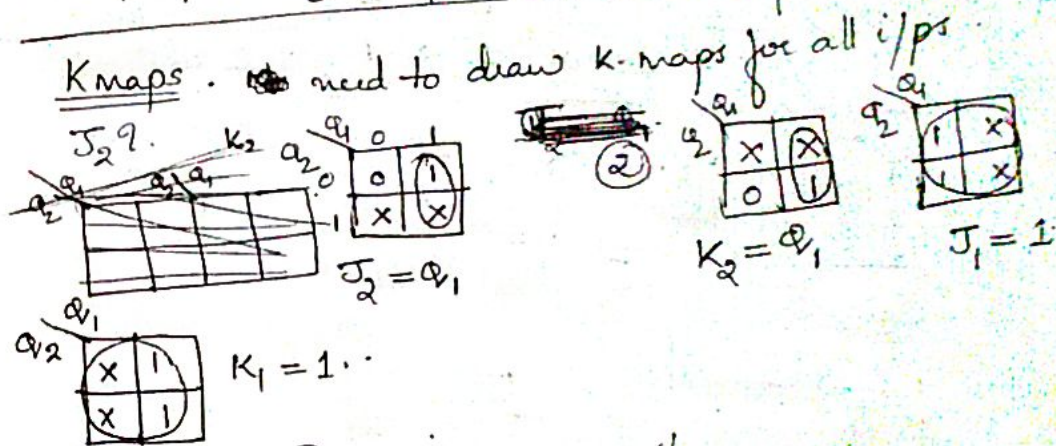 Kmaps. need to draw K-maps for all i/ps
J₂?
K₂
Q₂ Q₁ Q₂ Q₁
Q₂ Q₁ 0 1
0 0 1
1 X X
J₂ = Q₁
②
Q₂ Q₁
X X
0 1
K₂ = Q₁
Q₂ Q₁
1 X
1 X
J₁ = 1
Q₂ Q₁
X 1
X 1
K₁ = 1.